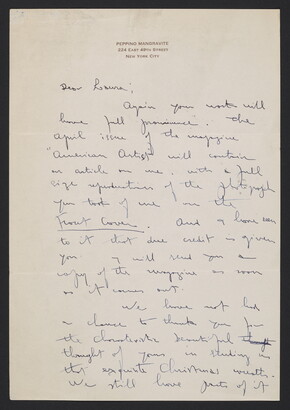 PEPPINO MANGRAVITE
224 EAST 49TH STREET
NEW YORK CITY
Dear Louise;
Again your work will
have full prominence. The
April issue of the magazine
"American Artist" will contain
an article on me. with a full
size reproduction of the photograph
you took of me on the
Front Cover. And I have seen
to it that due credit is given
you. I will send you a
copy of the magazine as soon
as it comes out.
We have not had
a chance to thank you for
the beautiful
thought of yours in sending us
that exquisite Christmas wreath.
We still have parts of it